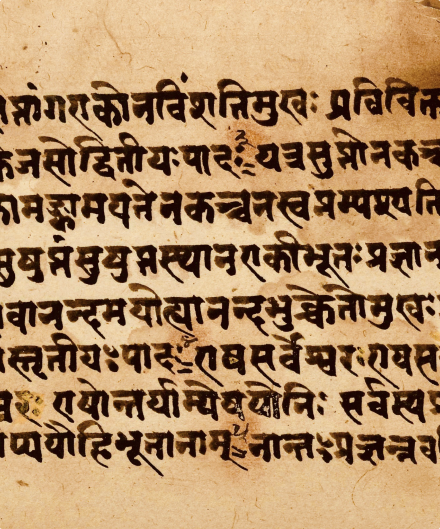 प्तांगएकोनविंशतिमुखः प्रविविक्त
जसोद्वितीयःपादः यत्रसुप्तोनकंच
कामङ्कामयतेनकच्चनस्वप्नम्पश्यति
सुषुप्तंसुषुप्तस्थानएकीभूतःप्रज्ञान
वानन्दमयोत्यानन्दभुक्चेतोमुखः
स्तृतीयःपादः एषसर्वेश्वरःएषस
एषोन्तर्याम्येषयोनिः सर्वस्यप्र
प्ययौहिभूतानाम् नान्तःप्रज्ञन्नव